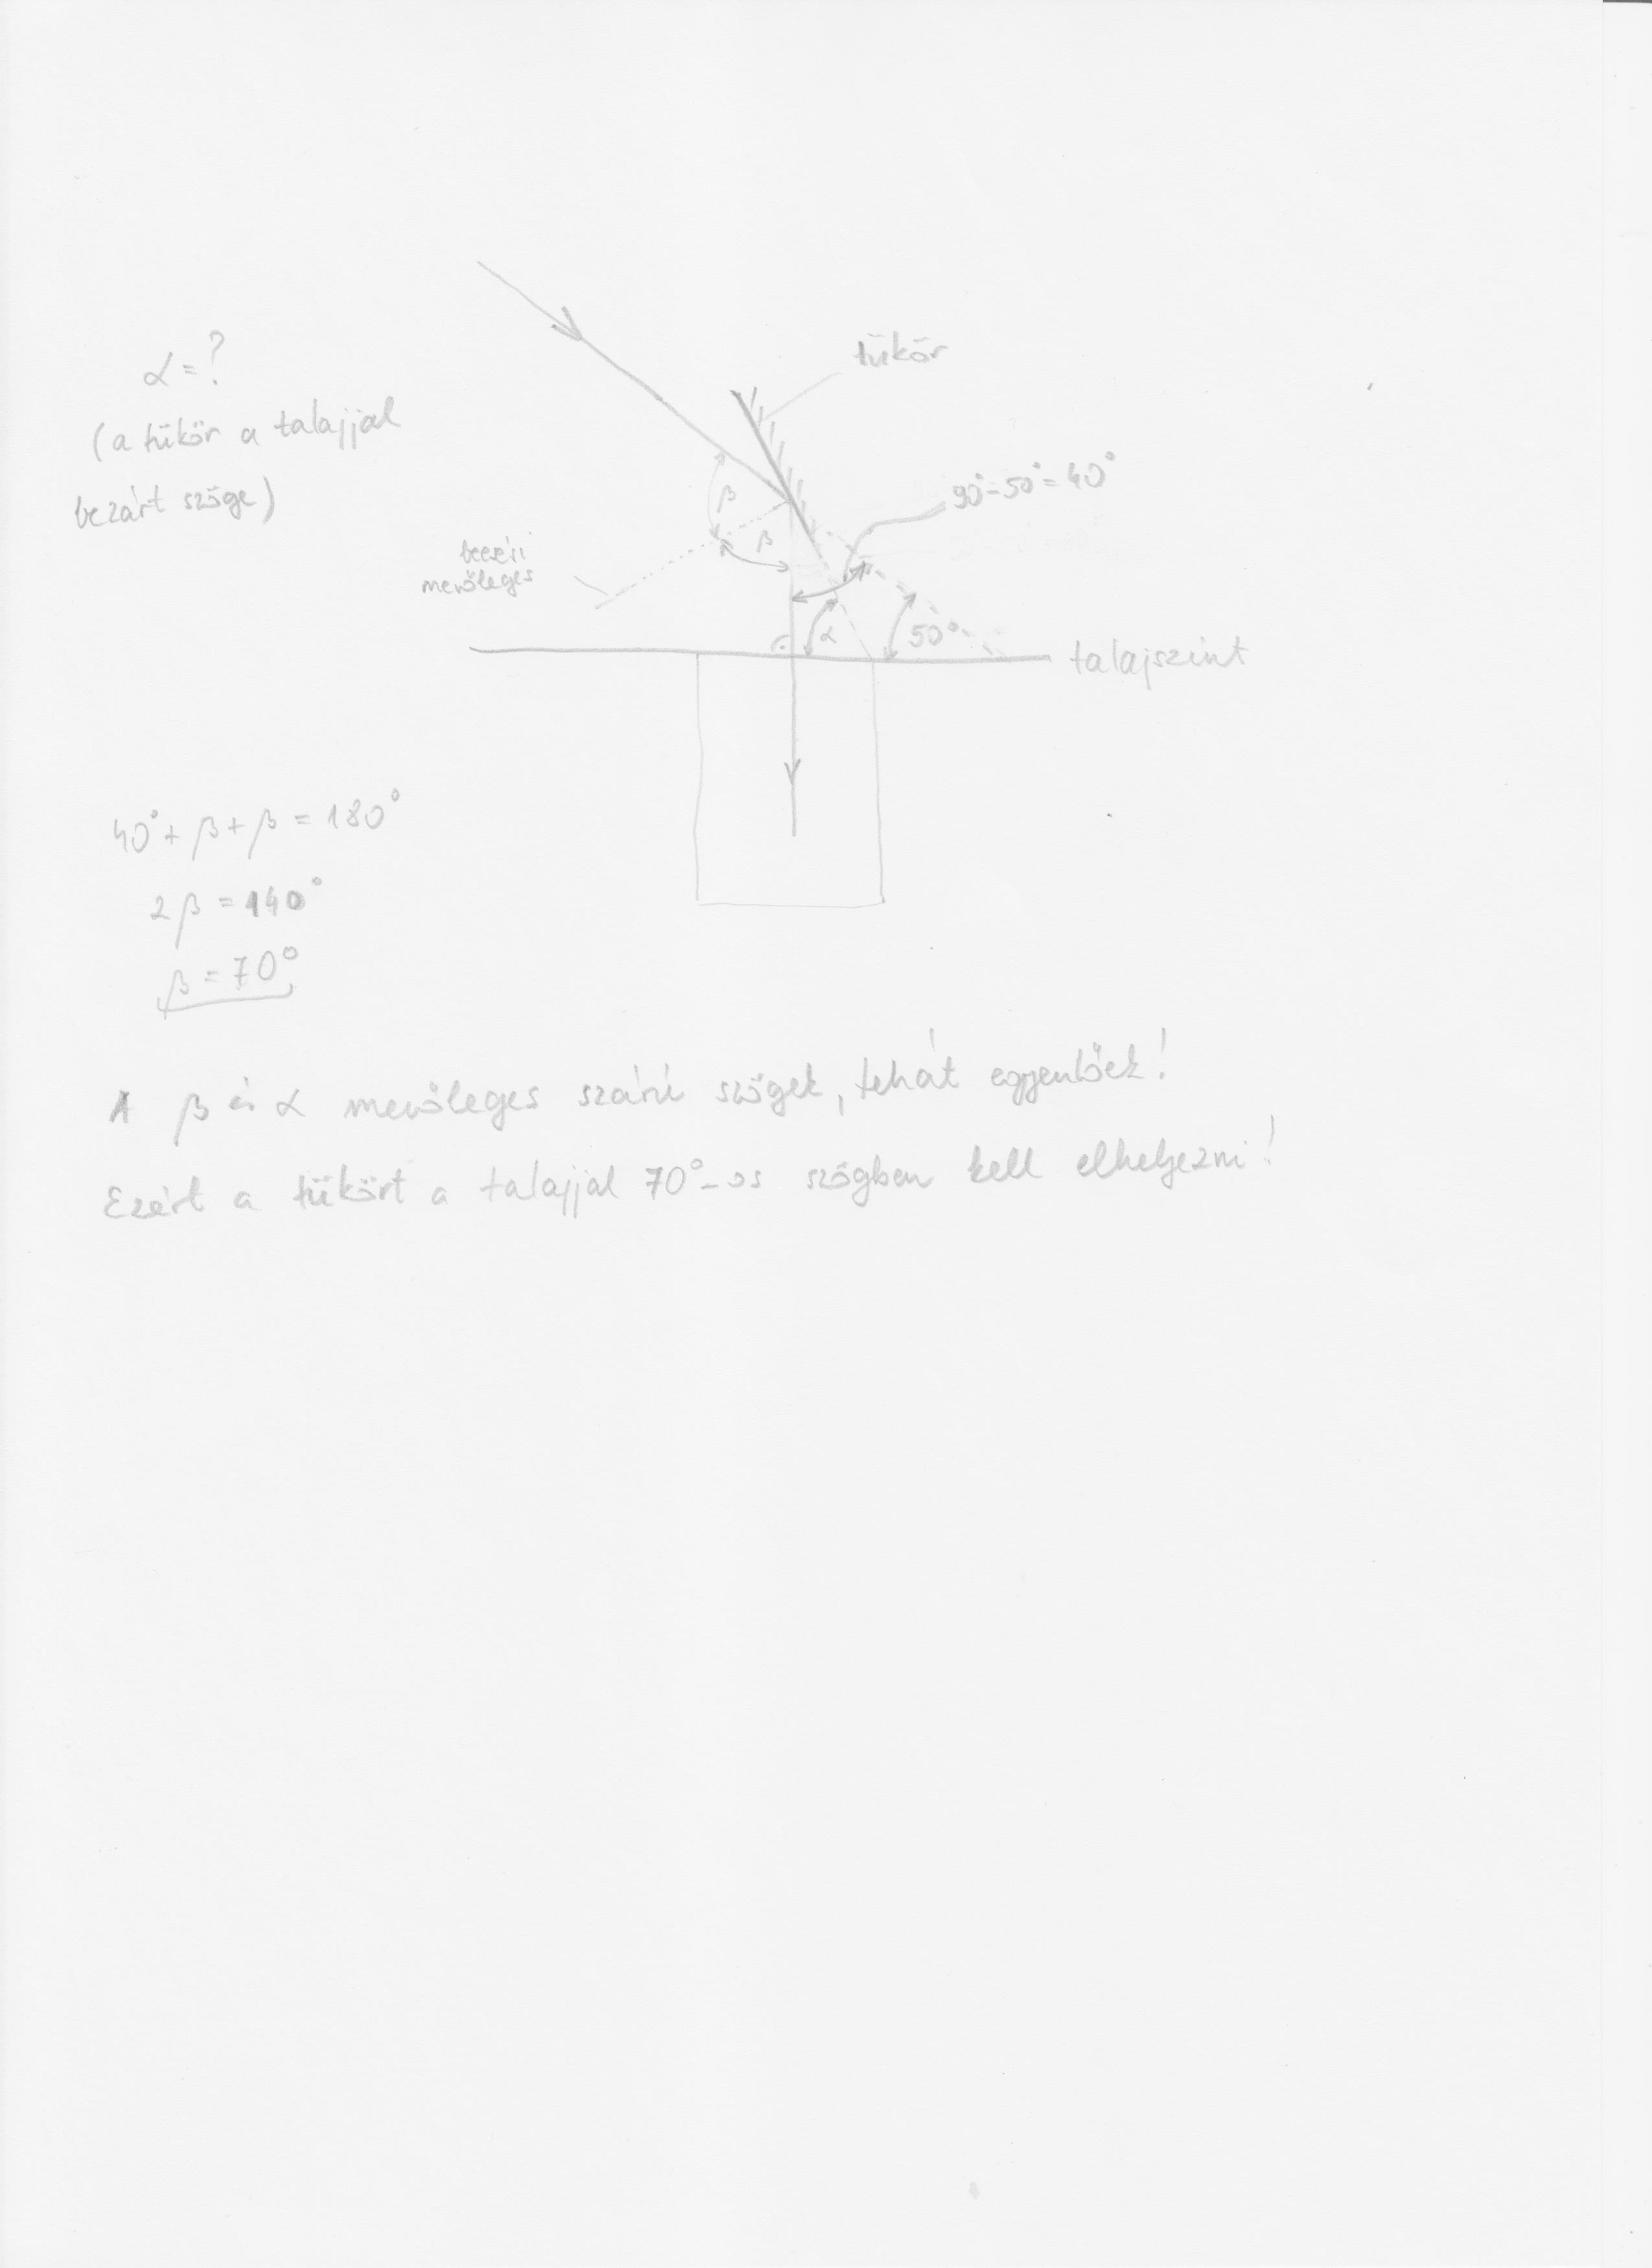 α = ?
(a tükör a talajjal
bezárt szöge)
tükör
90°-50°=40°
β
β
beesési
merőleges
α
50°
talajszint
40°+ β + β = 180°
2β = 140°
β = 70°
A β és α merőleges szárú szögek, tehát egyenlőek!
Ezért a tükört a talajjal 70°-os szögben kell elhelyezni!